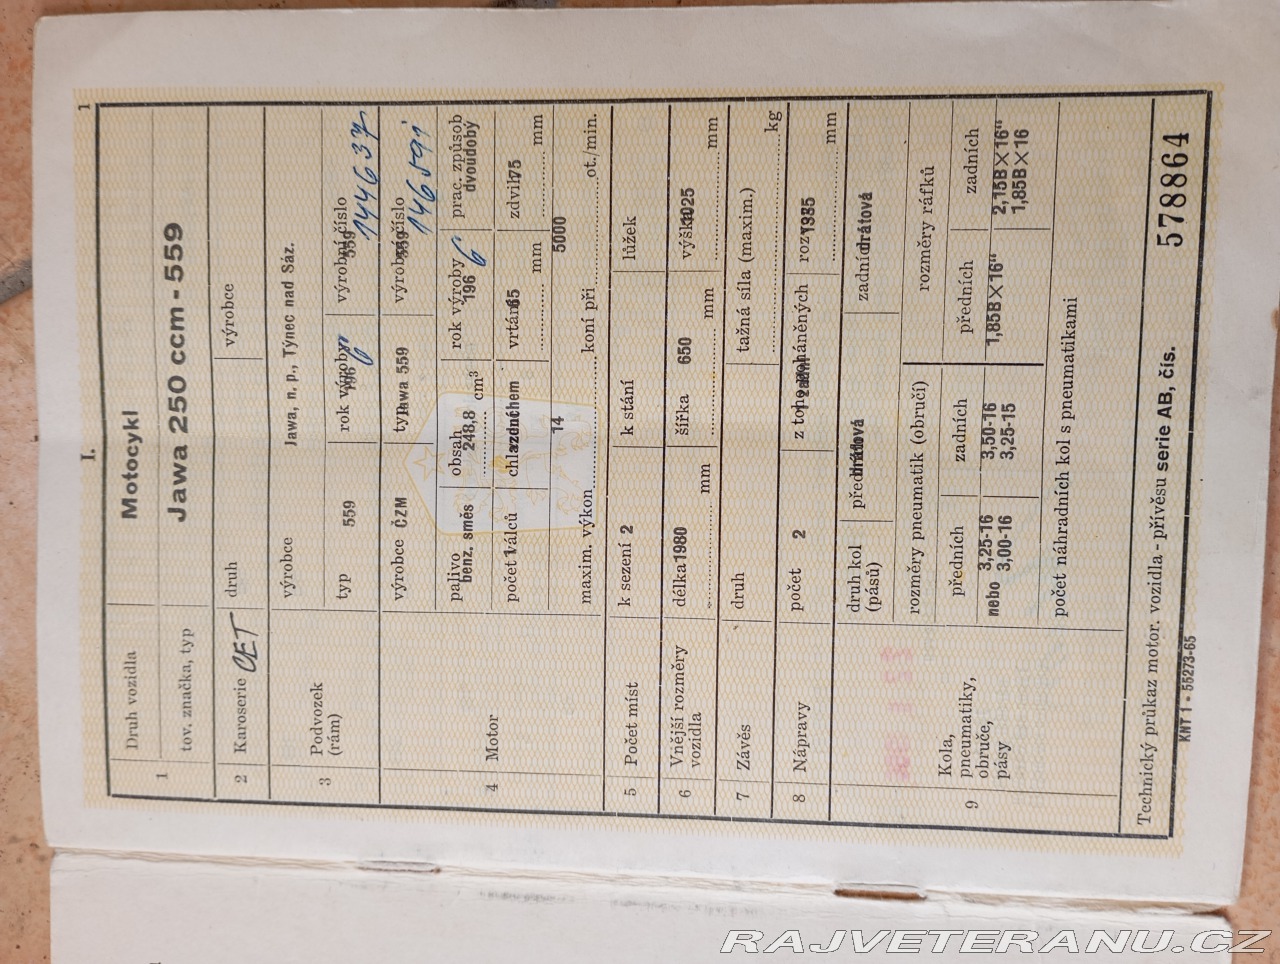 I.
1
1 Druh vozidla Motocykl
tov. značka, typ Jawa 250 ccm - 559
2 Karoserie CET druh výrobce
3 Podvozek (rám) výrobce Jawa, n. p., Týnec nad Sáz.
typ 559 rok výroby 196 výrobní číslo 559 1446 37
4 Motor výrobce ČZM typ Jawa 559 výrobní číslo 559 146591
palivo benz. směs obsah 248,8 cm³ rok výroby 1966 prac. způsob dvoudobý
počet válců 1 chlazení vzduchem vrtání 65 mm zdvih 75 mm
maxim. výkon 14 koní při 5000 ot./min.
5 Počet míst k sezení 2 k stání lůžek
6 Vnější rozměry vozidla délka 1980 mm šířka 650 mm výška 1025 mm
7 Závěs druh tažná síla (maxim.) kg
8 Nápravy počet 2 z toho poháněných 1 zadní rozv. 1335 mm
9 Kola, pneumatiky, obruče, pásy druh kol (pásů) předních drátová zadních drátová
rozměry pneumatik (obručí) rozměry ráfků
předních zadních předních zadních
3,25-16 3,50-16 1,85B×16" 2,15B×16"
nebo 3,00-16 3,25-15 1,85B×16
počet náhradních kol s pneumatikami
Technický průkaz motor. vozidla - přívěsu serie AB, čís. 578864
KNT 1 - 55273-65
RAJVETERANU.CZ